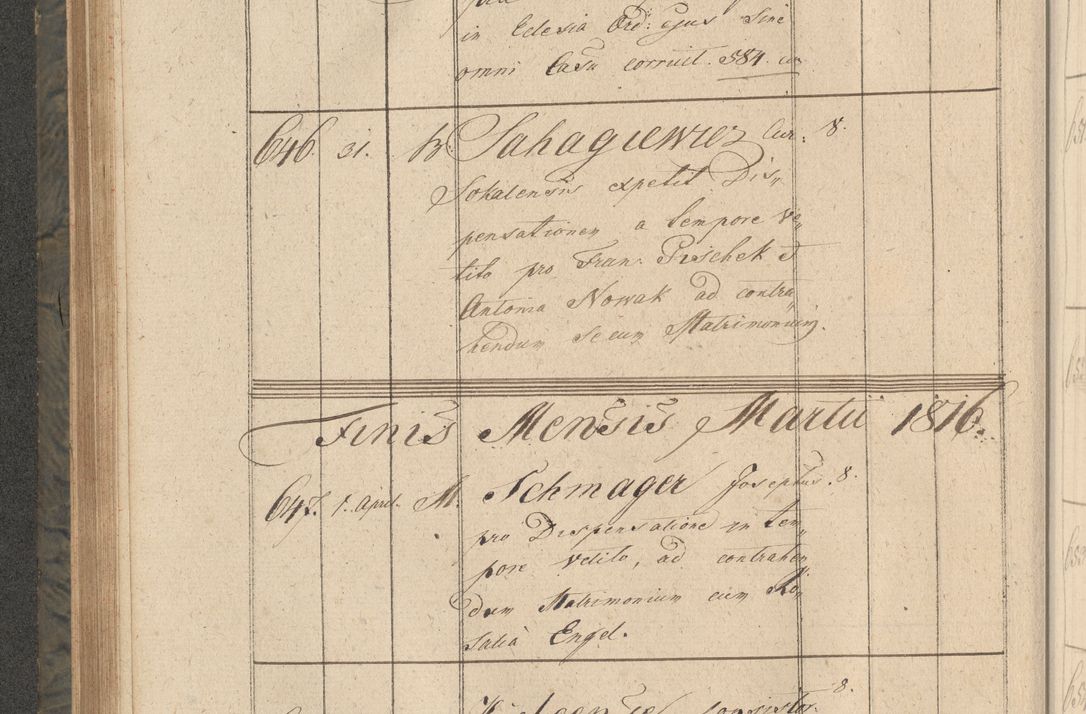 in Eclesia Ord: ejus Sine
omni Casu corruit. 584.
646. 31. B. Sahagiewicz Cur: 8.
Sokalensis expetit Dis„
pensationem a tempore ve„
tito pro Fran: Pischek et
Antonia Nowak ad contra„
hendum Secum Matrimonium.
Finis Mensis Martii 1816.
647. 1. April. M. Schmager Josephus 8.
pro Dispensatione in tem„
pore vetito, ad contrahen„
dum Matrimonium cum Ro„
salia Engel.
8.